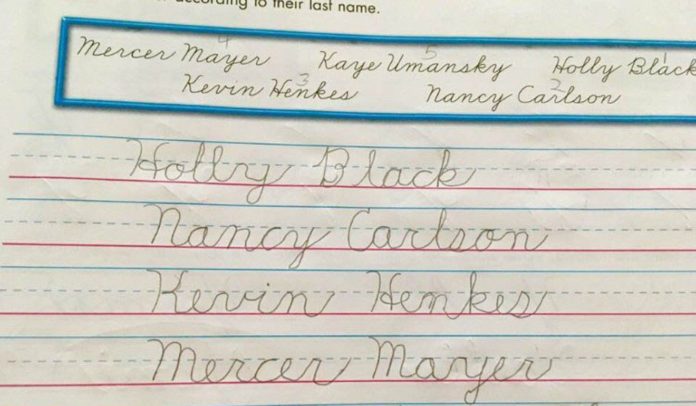 according to their last name.
4 5 1
Mercer Mayer Kaye Umansky Holly Black
3 2
Kevin Henkes Nancy Carlson
Holly Black
Nancy Carlson
Kevin Henkes
Mercer Mayer